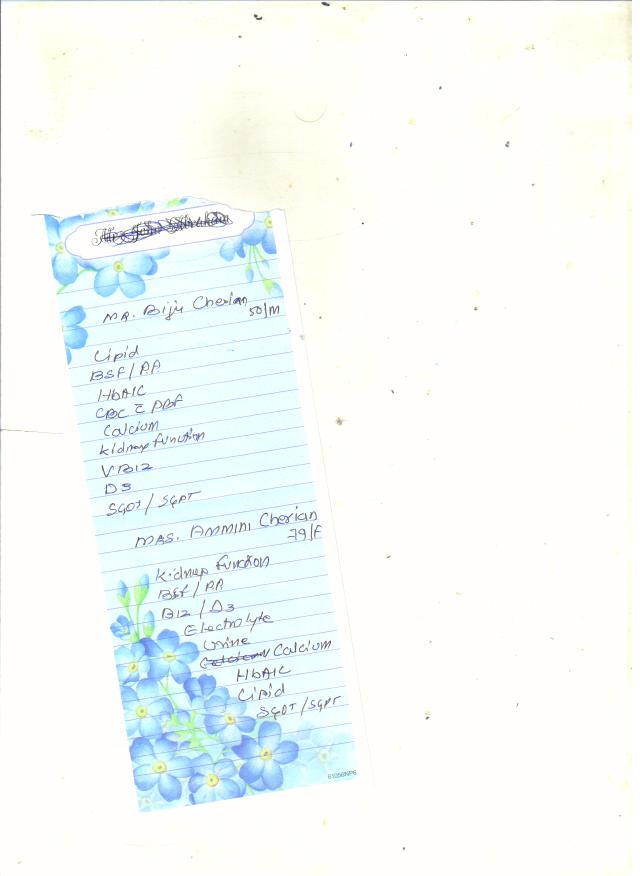 MR. Biju Cherian
50/M
Lipid
BSF/PP
HbA1C
CBC c̄ PBF
Calcium
kidney function
VB12
D3
SGOT/SGPT
MRS. AMMINI Cherian
79/F
Kidney function
BSF/PP
B12/D3
Electrolyte
Urine
Calcium Calcium
HbA1C
Lipid
SGOT/SGPT
61056NP6